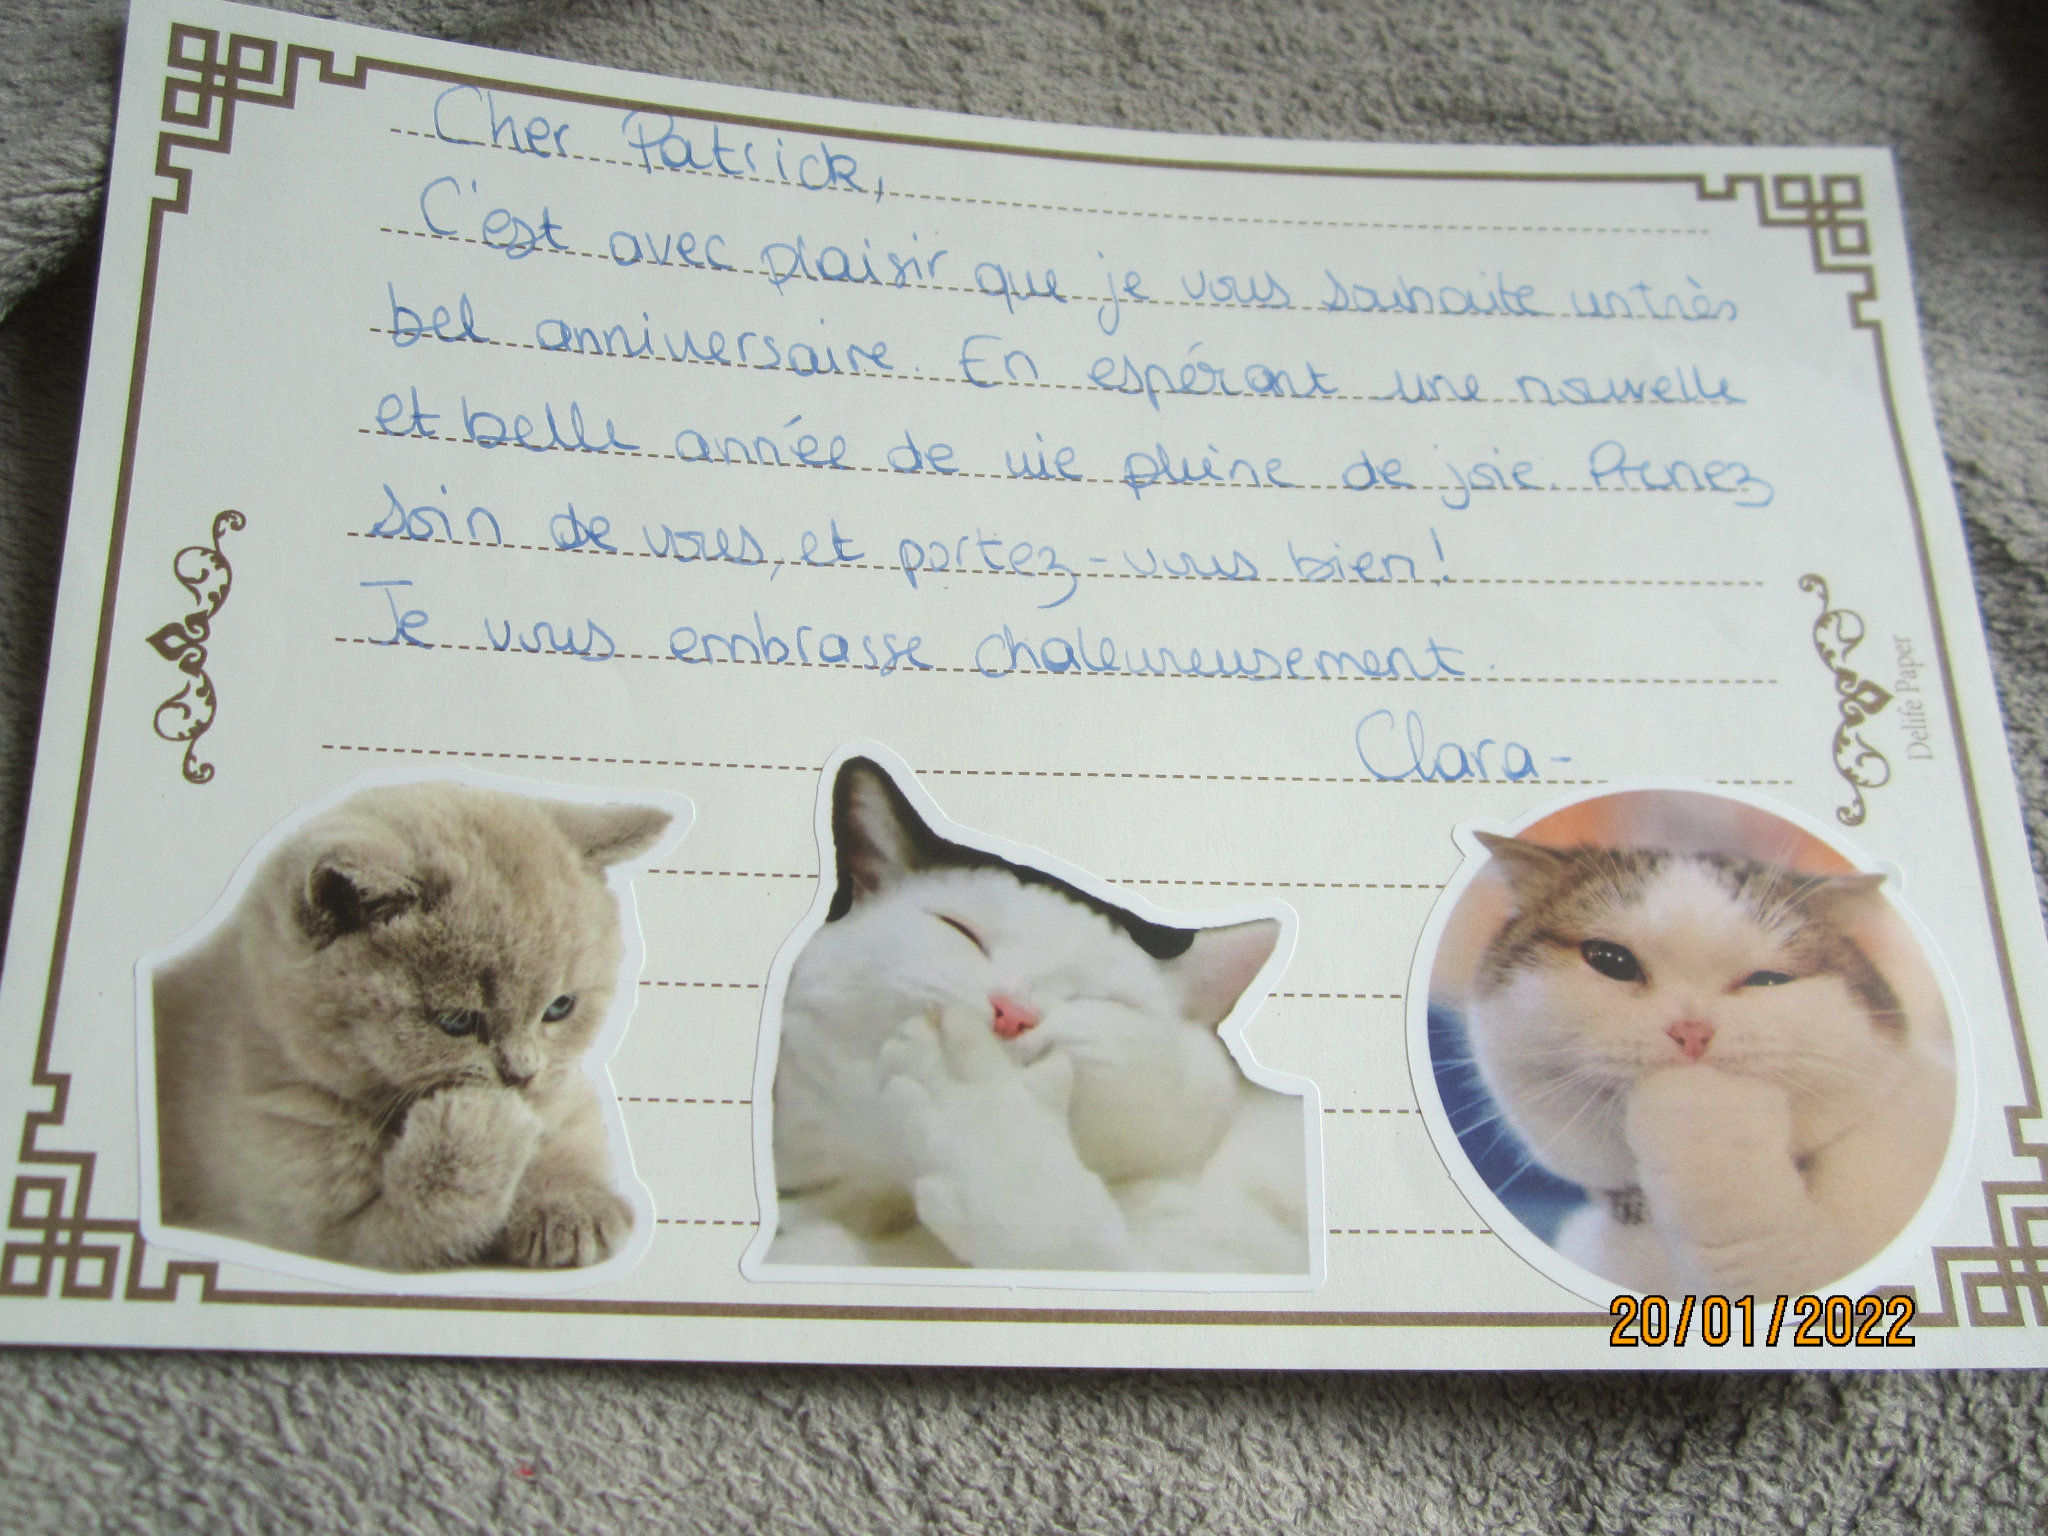 Cher Patrick,
C'est avec plaisir que je vous souhaite un très
bel anniversaire. En espérant une nouvelle
et belle année de vie pleine de joie. Prenez
soin de vous, et portez-vous bien!
Je vous embrasse chaleureusement.
Clara-
Delife Paper
20/01/2022